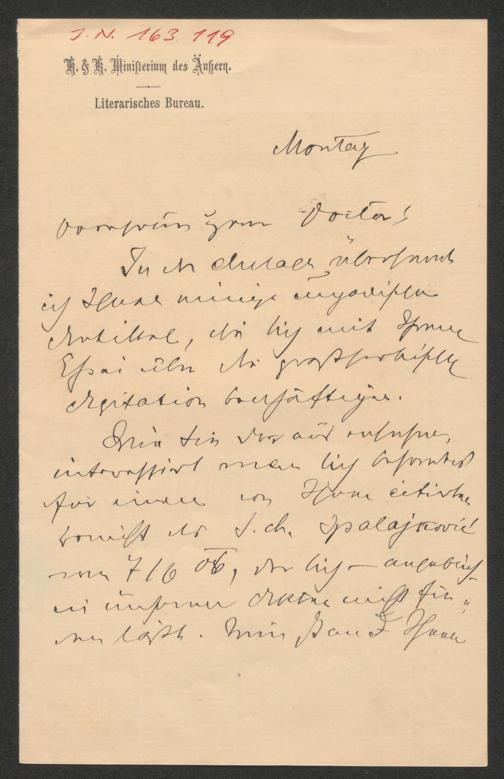 J. N. 163.119
K. & K. Ministerium des Äußern.
Literarisches Bureau.
Montag
Verehrter Herr Doctor!
In der Anlage übersende
ich Ihnen einige ungarische
Artikel, die sich mit Ihrem
Essai über die großserbische
Agitation beschäftigen.
Wie Sie daraus ersehen,
interessirt man sich besonders
für einen von Ihnen citirten
Bericht des S. Ch. Spalajković
vom 7/6 06, der sich – angeblich
in unseren Akten nicht fin-
den läßt. Ihnen